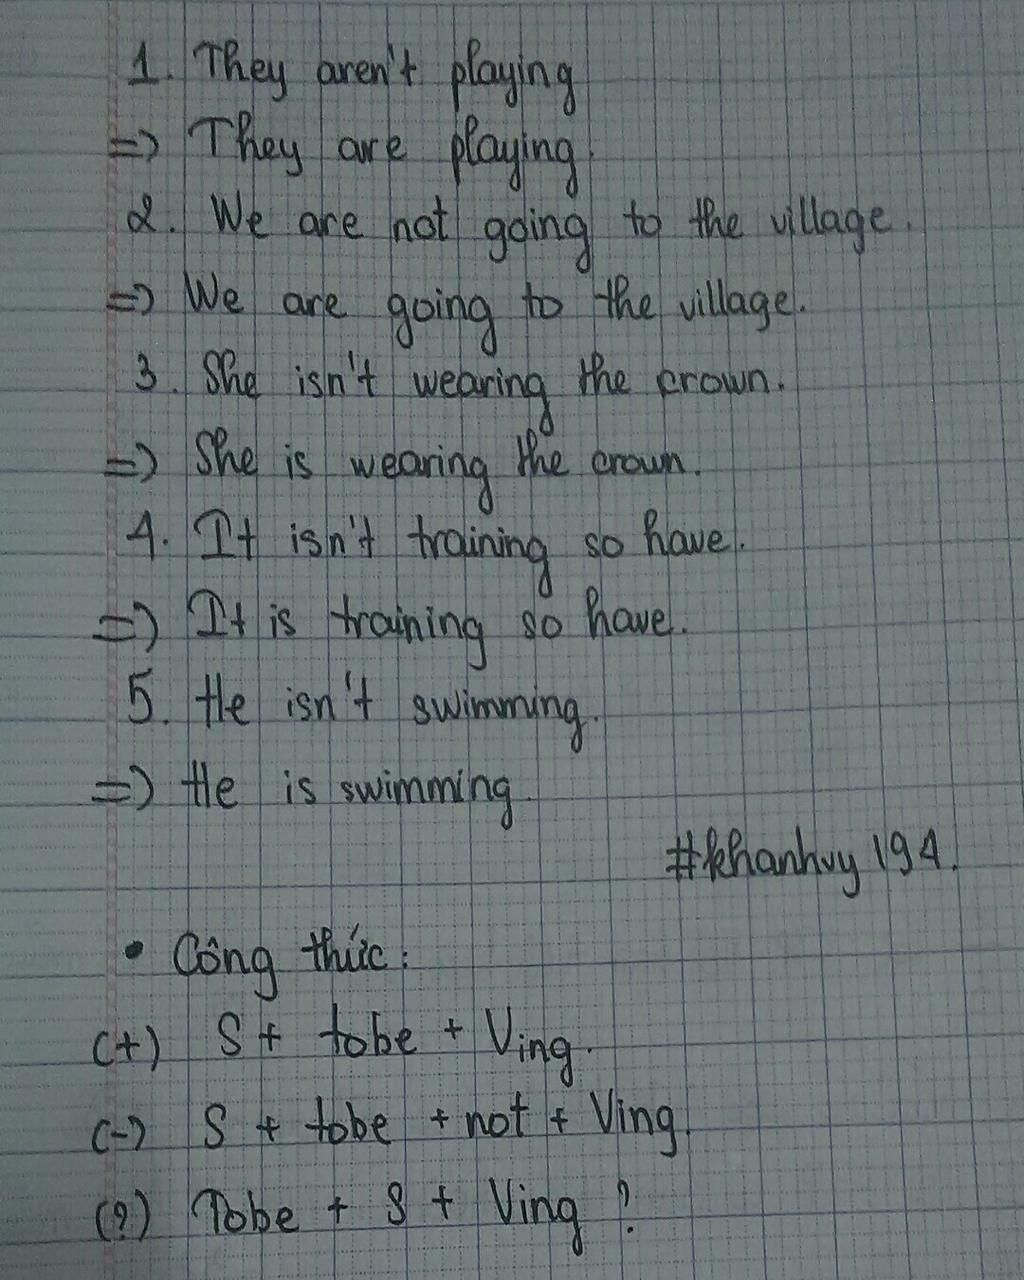 1. They aren't playing
=> They are playing.
2. We are not going to the village.
=> We are going to the village.
3. She isn't wearing the crown.
=> She is wearing the crown.
4. It isn't training so have.
=> It is training so have.
5. He isn't swimming.
=> He is swimming.
#khanhvy 194.
• Công thức:
(+) S + tobe + Ving.
(-) S + tobe + not + Ving.
(?) Tobe + S + Ving ?